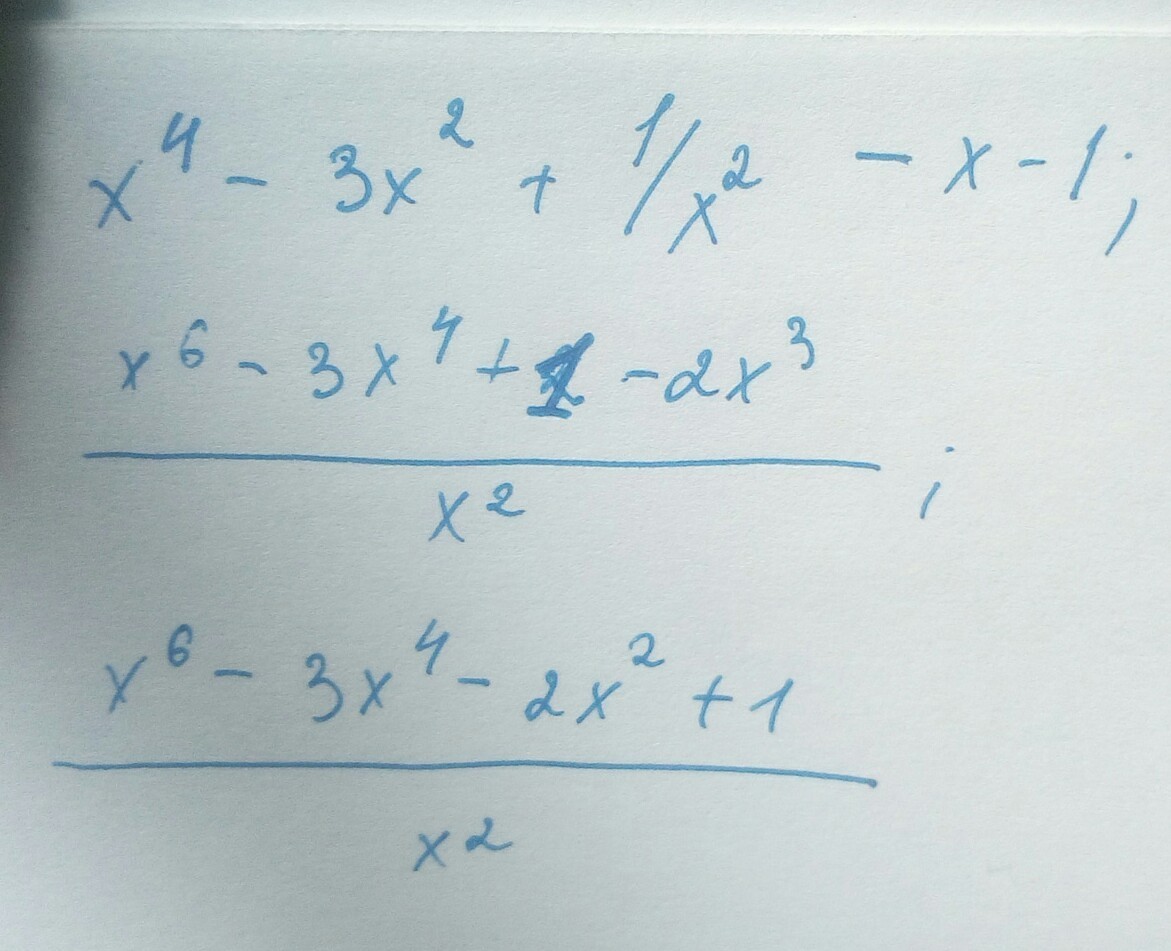 x⁴ - 3x² + 1/x² - x - 1;
x⁶ - 3x⁴ + 1 - 2x³
x² ;
x⁶ - 3x⁴ - 2x² + 1
x²